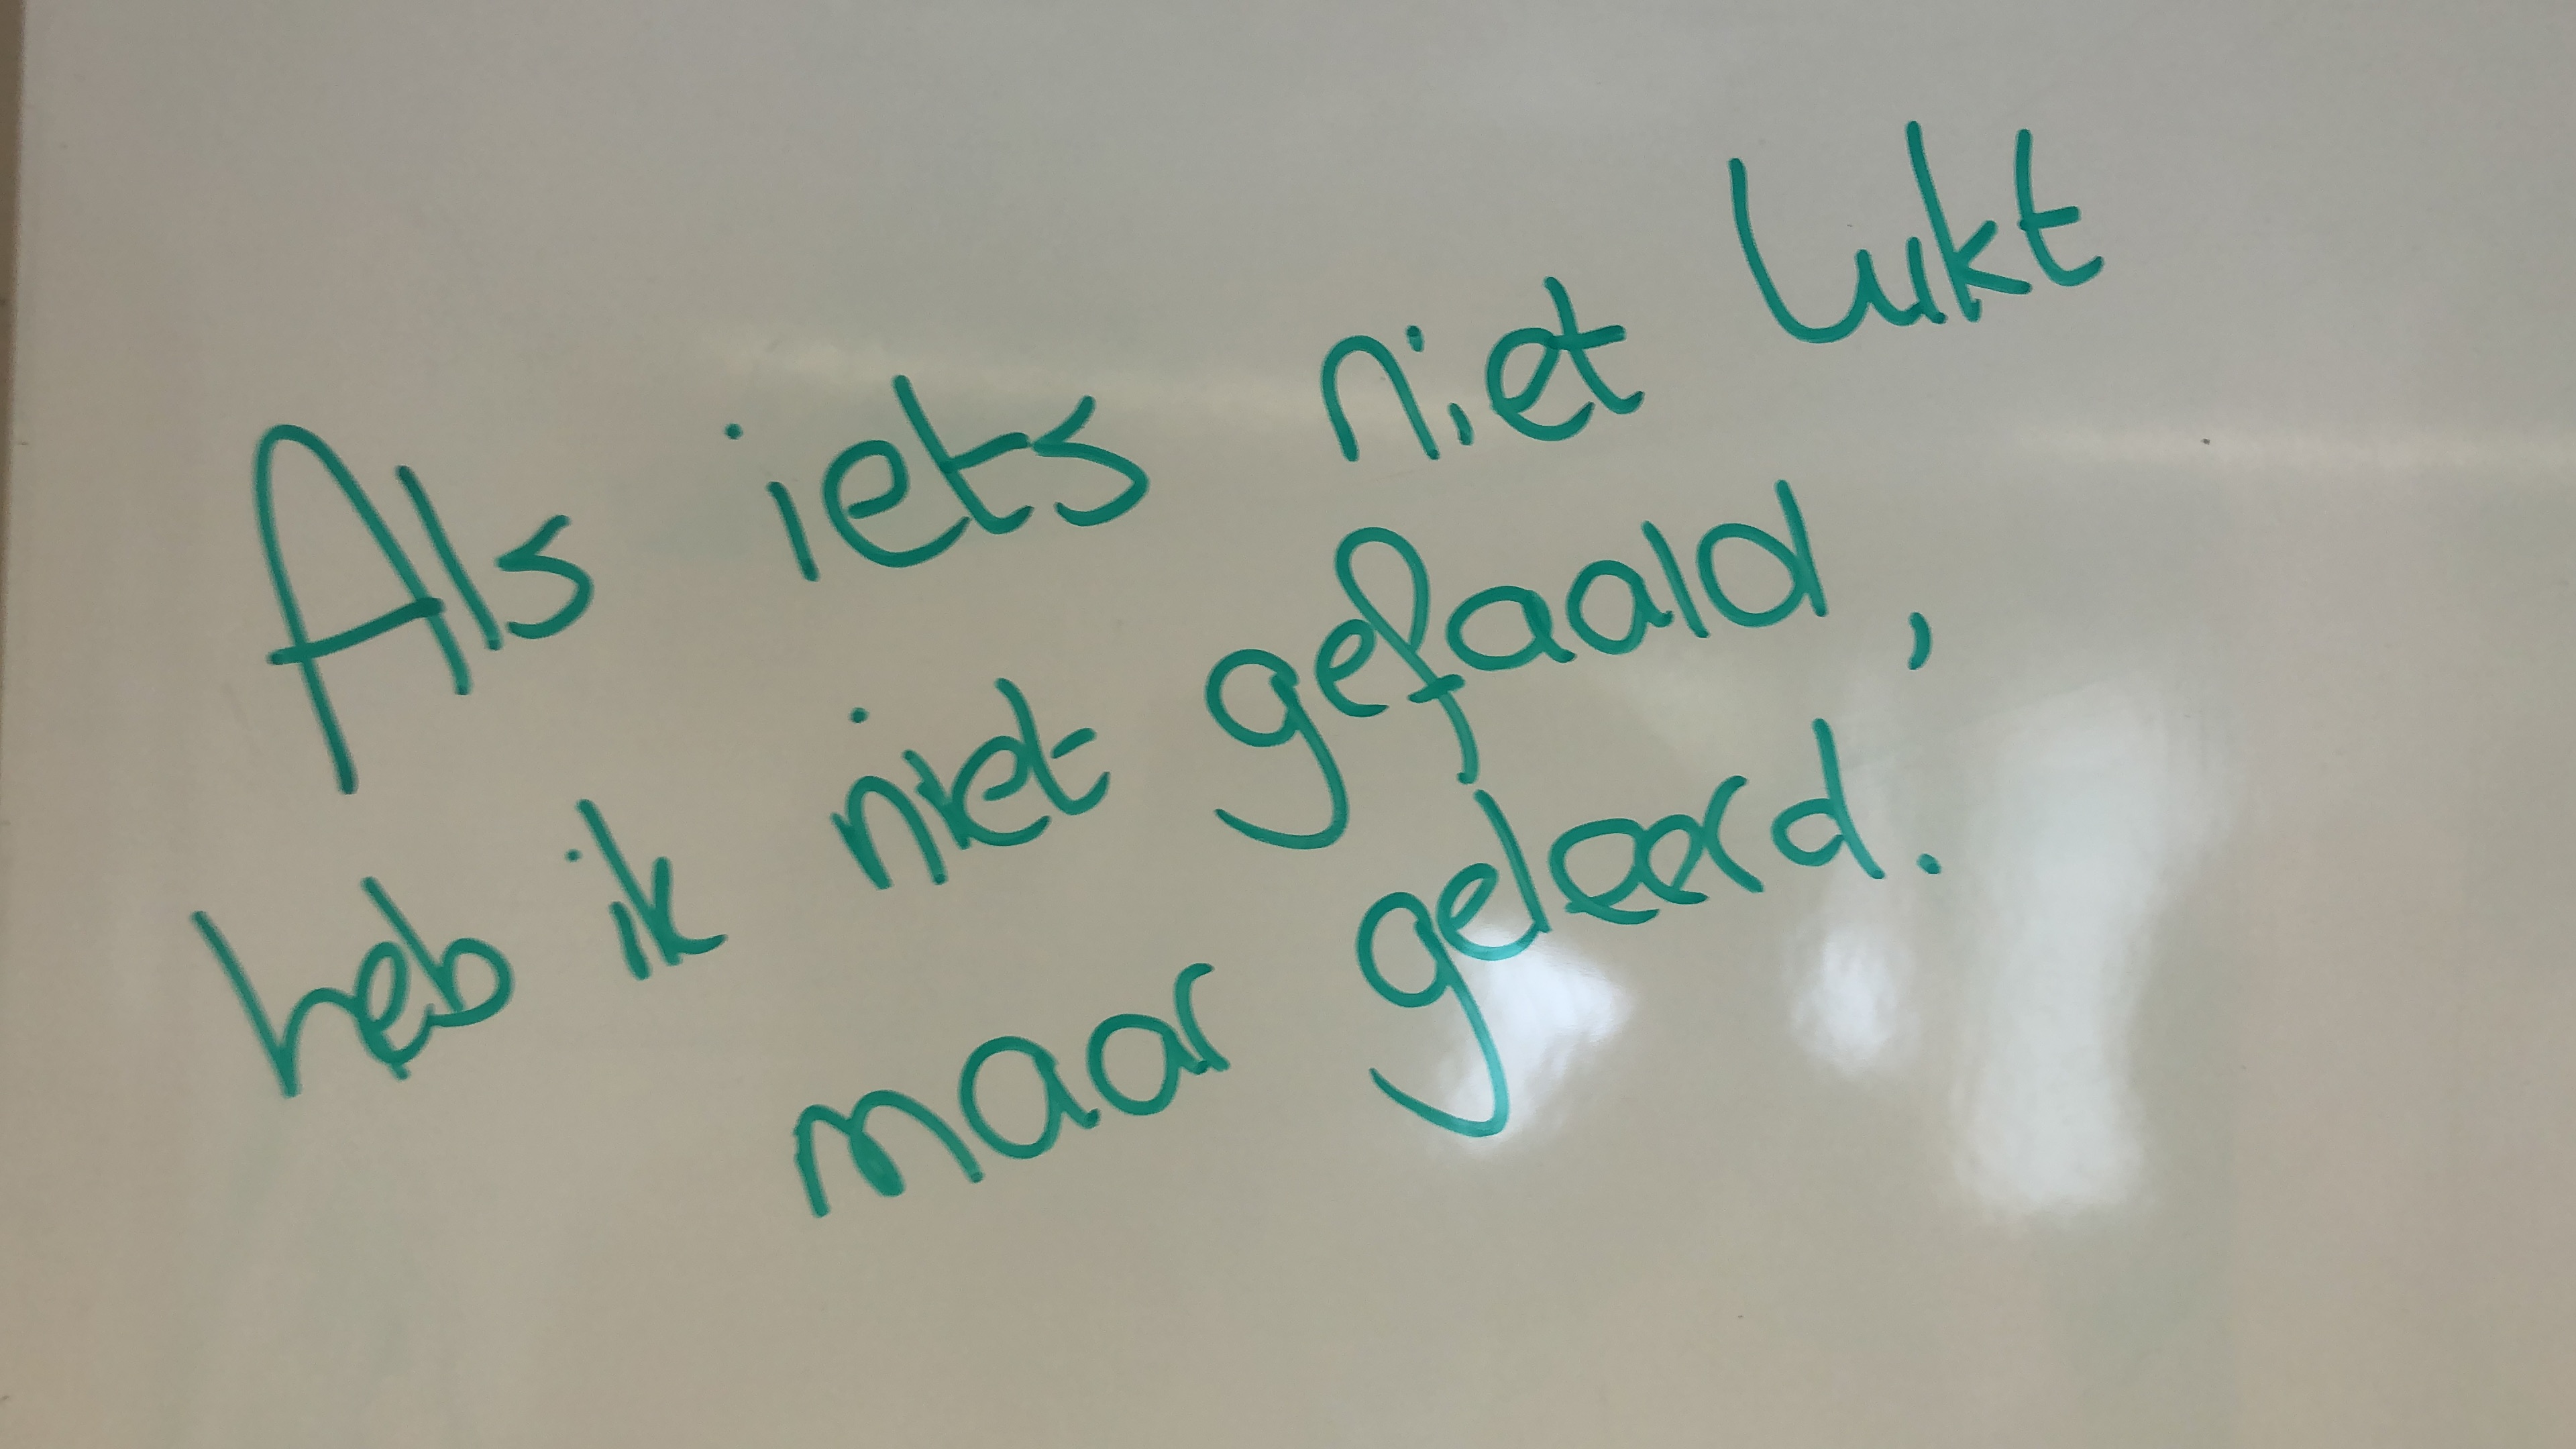 Als iets niet lukt
heb ik niet gefaald,
maar geleerd.